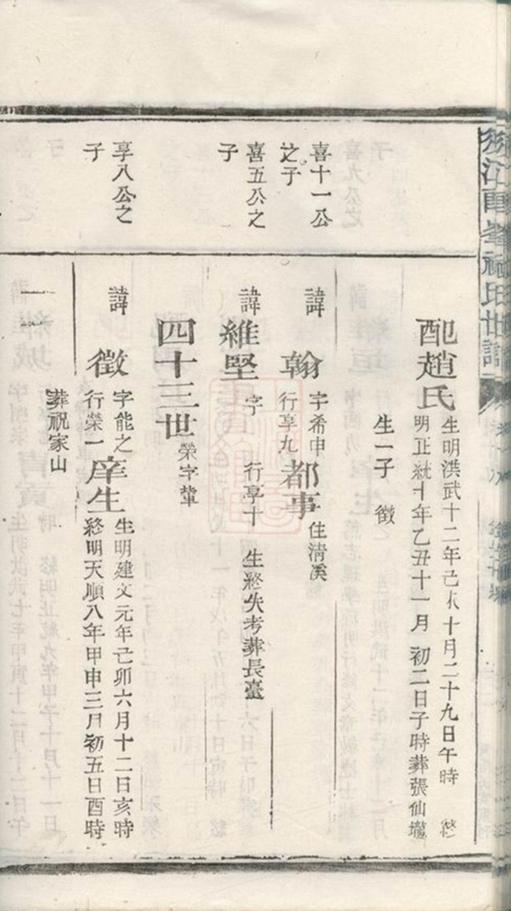 配趙氏
生明洪武十二年己未十月二十九日午時 終
明正統十年乙丑十一月初二日子時葬張仙壠
生一子 徵
喜十一公
之子
諱 翰 字希申
行享九 都事 住清溪
喜五公之
子
諱 維堅 字 行享十 生終失考葬長臺
四十三世 榮字輩
享八公之
子
諱 徵 字能之
行榮一 庠生 生明建文元年己卯六月十二日亥時
終明天順八年甲申三月初五日酉時
葬祝家山